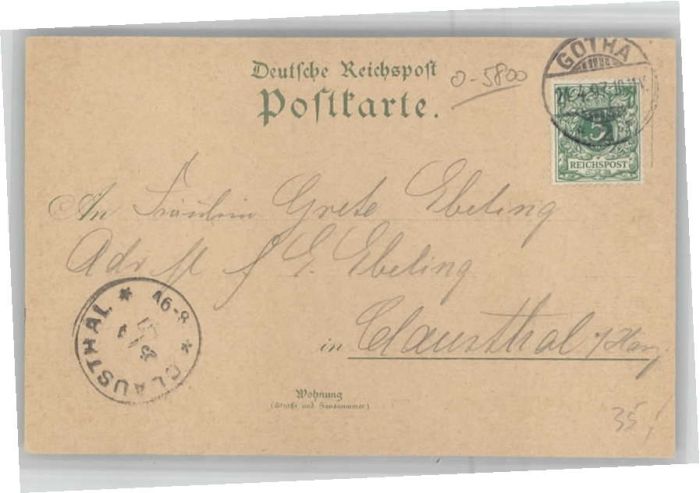 Deutsche Reichspost
Postkarte.
0-5800
GOTHA
5
REICHSPOST
An Fräulein Grete Ebeling
Adr
Ebeling
in Clausthal /Harz
CLAUSTHAL
Wohnung
(Straße und Hausnummer)
35,